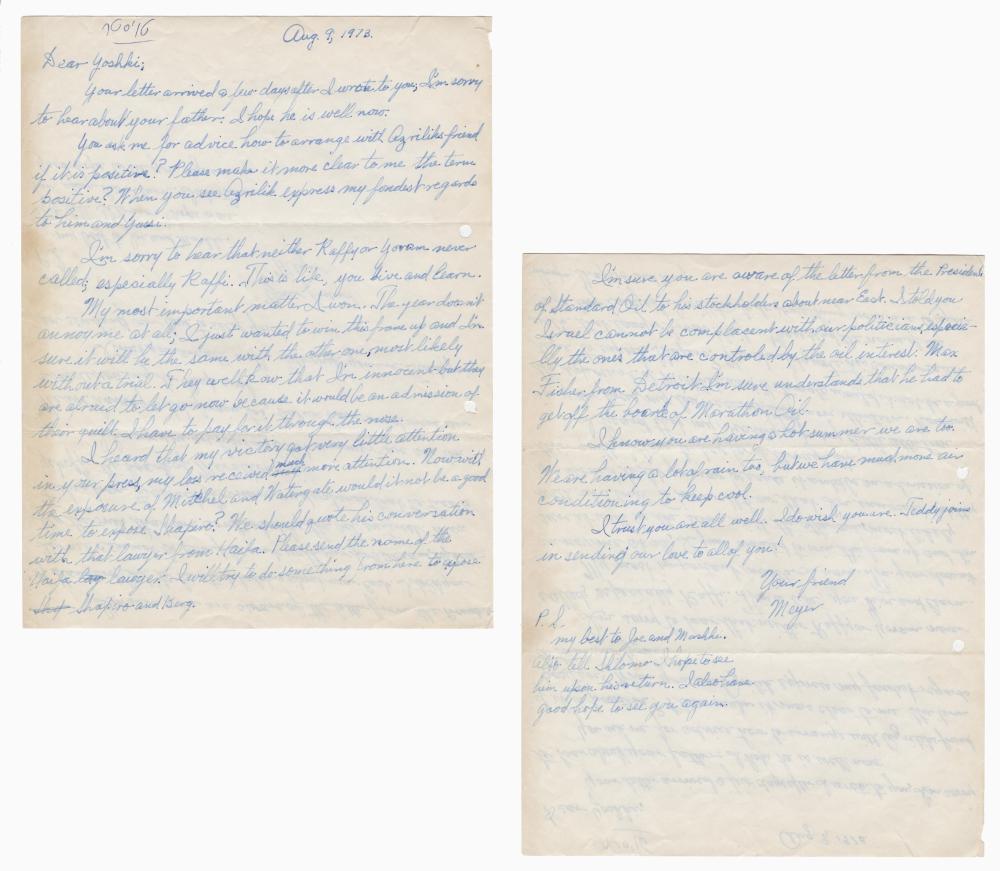 Aug. 9, 1973.
Dear Yoshki;
Your letter arrived a few days after I wrote to you, I'm sorry
to hear about your father. I hope he is well now.
You ask me for advice how to arrange with Azriliks friend
if it is positive? Please make it more clear to me the term
positive? When you see Azrilik express my fondest regards
to him and Yussi.
I'm sorry to hear that neither Raffy or Yoram never
called; especially Raffi. This is life, you live and learn.
My most important matter I won. The year doesn't
annoy me at all; I just wanted to win this frame up and I'm
sure it will be the same with the other one, most likely
without a trial. They well know that I'm innocent but they
are afraid to let go now because it would be an admission of
their guilt. I have to pay for it through the nose.
I heard that my victory got very little attention
in your press, my loss received much more attention. Now with
the exposure of Mitchel and Watergate would it not be a good
time to expose Shapiro? We should quote his conversation
with that lawyer from Haifa. Please send the name of the
Haifa lawyer. I will try to do something from here to expose
Shapiro and Berg.
I'm sure you are aware of the letter from the Presidents
of Standard Oil to his stockholders about near East. I told you
Israel cannot be complacent with our politicians, especia-
lly the ones that are controled by the oil interest. Max
Fisher from Detroit I'm sure understands that he had to
get off the board of Marathon Oil.
I know you are having a hot summer we are too.
We are having a lot of rain too, but we have much more air
conditioning to keep cool.
I trust you are all well. I do wish you are. Teddy joins
in sending our love to all of you!
Your friend
Meyer
P.S.
my best to Joe and Mashki.
also tell Shlomo I hope to see
him upon his return. I also have
good hope to see you again.